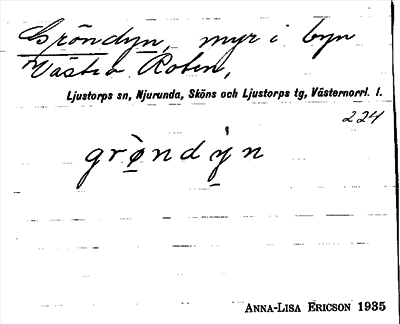 Gröndyn, myr i byn
Västra Roten,
Ljustorps sn, Njurunda, Sköns och Ljustorps tg, Västernorrl. l.
224
grøndýn
ANNA-LISA ERICSON 1935